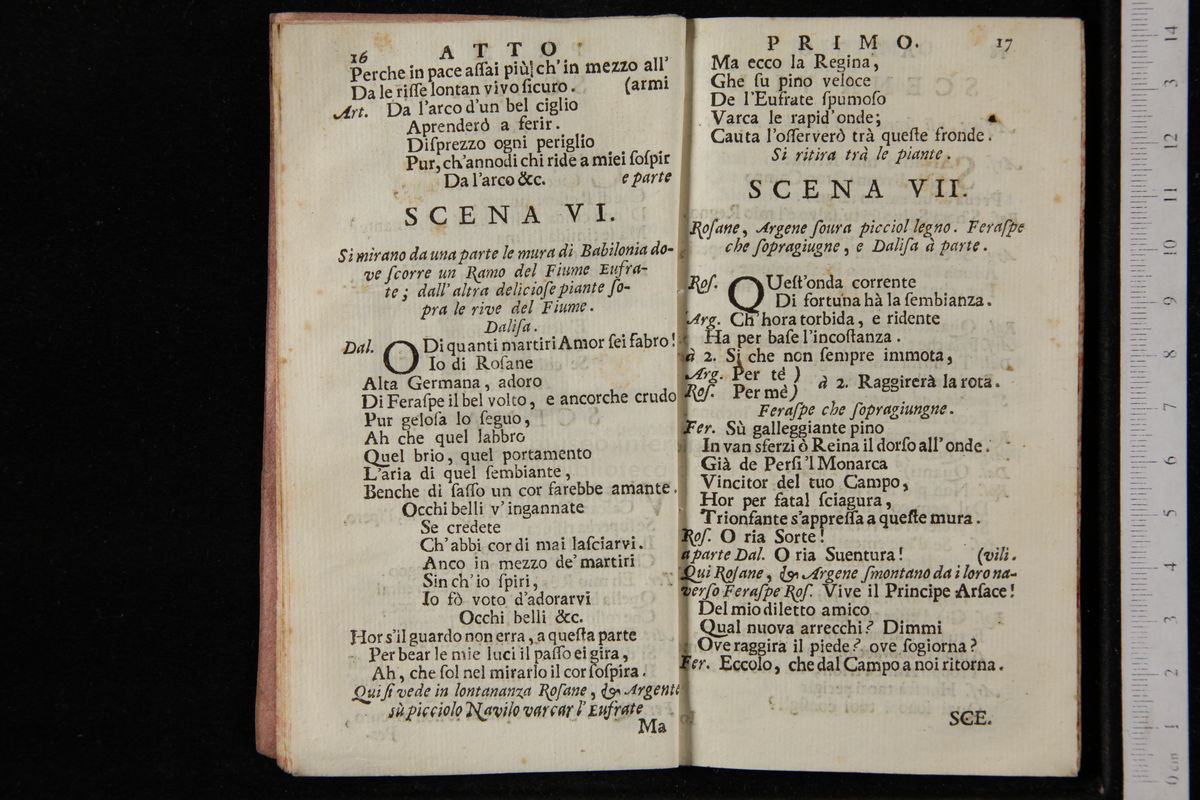 16 ATTO
Perche in pace aſſai più ch'in mezzo all'
Da le riſſe lontan vivo ſicuro. (armi
Art. Da l'arco d'un bel ciglio
Aprenderò a ferir.
Diſprezzo ogni periglio
Pur, ch'annodi chi ride a miei ſoſpir
Da l'arco &c. e parte
SCENA VI.
Si mirano da una parte le mura di Babilonia do-
ve ſcorre un Ramo del Fiume Eufra-
te; dall'altra delicioſe piante ſo-
pra le rive del Fiume.
Daliſa.
Dal. O Di quanti martiri Amor ſei fabro!
Io di Roſane
Alta Germana, adoro
Di Feraſpe il bel volto, e ancorche crudo
Pur geloſa lo ſeguo,
Ah che quel labbro
Quel brio, quel portamento
L'aria di quel ſembiante,
Benche di ſaſſo un cor farebbe amante.
Occhi belli v'ingannate
Se credete
Ch'abbi cor di mai laſciarvi.
Anco in mezzo de' martiri
Sin ch'io ſpiri,
Io fò voto d'adorarvi
Occhi belli &c.
Hor s'il guardo non erra, a queſta parte
Per bear le mie luci il paſſo ei gira,
Ah, che ſol nel mirarlo il cor ſoſpira.
Qui ſi vede in lontananza Roſane, & Argente
sù picciolo Navilo varcar l'Eufrate
Ma
PRIMO. 17
Ma ecco la Regina,
Ghe ſu pino veloce
De l'Eufrate ſpumoſo
Varca le rapid'onde;
Cauta l'oſſerverò trà queſte fronde.
Si ritira trà le piante.
SCENA VII.
Roſane, Argene ſoura picciol legno. Feraſpe
che ſopragiugne, e Daliſa à parte.
Roſ. QUeſt'onda corrente
Di fortuna hà la ſembianza.
Arg. Ch'hora torbida, e ridente
Ha per baſe l'incoſtanza.
à 2. Si che non ſempre immota,
Arg. Per tè )
à 2. Raggirerà la rota.
Roſ. Per mè)
Feraſpe che ſopragiungne.
Fer. Sù galleggiante pino
In van sferzi ò Reina il dorſo all'onde.
Già de Perſi 'l Monarca
Vincitor del tuo Campo,
Hor per fatal ſciagura,
Trionfante s'appreſſa a queſte mura.
Roſ. O ria Sorte!
a parte Dal. O ria Suentura! (vili.
Qui Roſane, & Argene ſmontano da i loro na-
verſo Feraſpe Roſ. Vive il Principe Arſace!
Del mio diletto amico
Qual nuova arrecchi? Dimmi
Ove raggira il piede? ove ſogiorna?
Fer. Eccolo, che dal Campo a noi ritorna.
SCE.